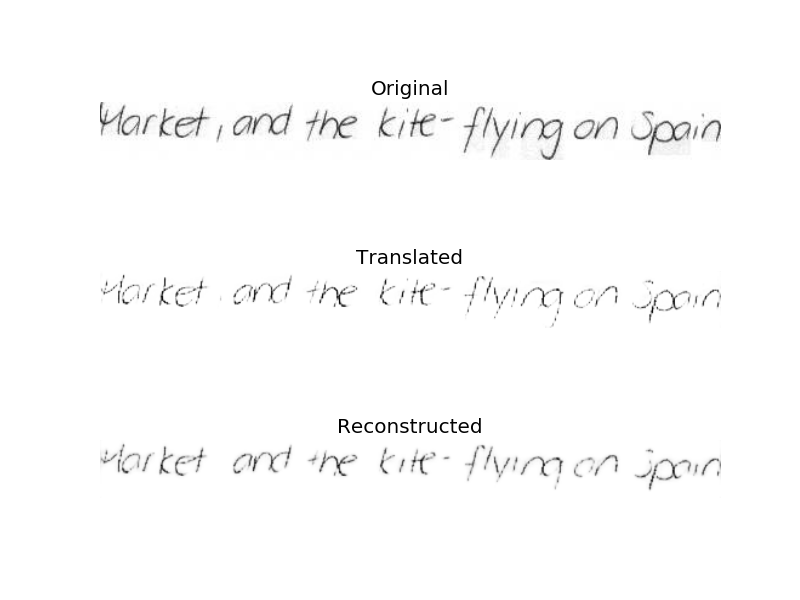 Original
Market, and the kite-flying on Spain
Translated
Market and the kite-flying on Spain
Reconstructed
Market and the kite-flying on Spain